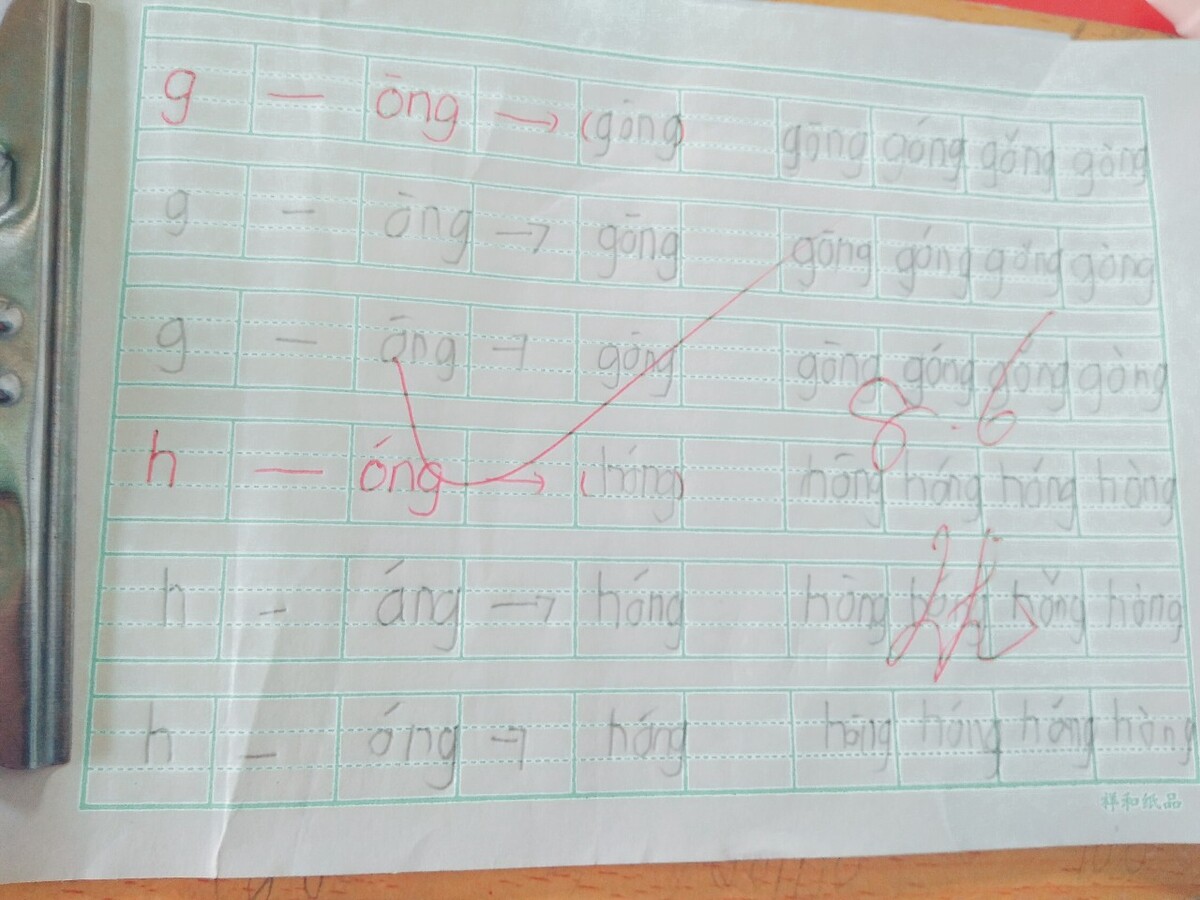 g — ōng → (gōng) gōng góng gǒng gòng
g — ōng → gōng gōng góng gǒng gòng
g — ōng → gōng gōng góng gǒng gòng
8.6
h — óng → (hóng) hōng hóng hóng hòng
h - óng → hóng hōng hóng hǒng hòng
h - óng → hóng hōng hóng hóng hòng
祥和纸品